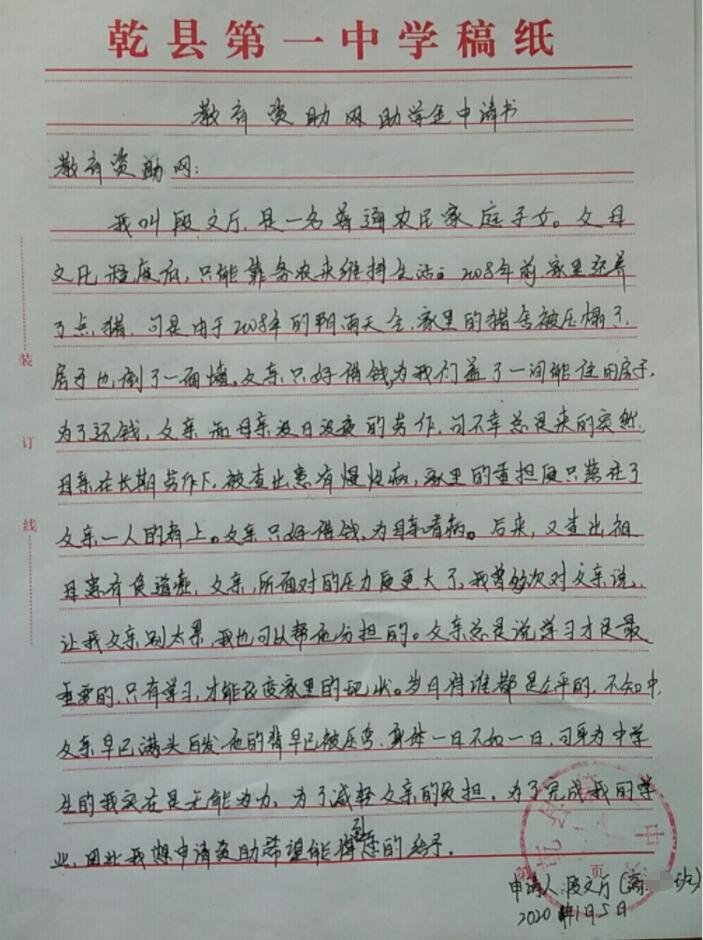 乾县第一中学稿纸
教育资助网助学金申请书
教育资助网：
我叫段文厅，是一名普通农民家庭子女。父母
文化程度低，只能靠务农来维持生活。2008年前家里还养
了点猪，可是由于2008年的阴雨天气，家里的猪舍被压塌了，
房子也倒了一面墙。父亲只好借钱，为我们盖了一间能住的房子，
为了还钱，父亲和母亲没日没夜的劳作，可不幸总是来的突然，
母亲在长期劳作下，被查出患有慢性病，家里的重担便只落在了
父亲一人的肩上。父亲只好借钱，为母亲看病。后来，又查出祖
母患有食道癌，父亲，所面对的压力便更大了，我曾多次对父亲说，
让我父亲别太累，我也可以帮他分担的。父亲总是说学习才是最
重要的，只有学习，才能改变家里的现状。岁月待谁都是公平的，不知中，
父亲早已满头白发他的背早已被压弯，身体一日不如一日，可身为中学
生的我实在是无能为力，为了减轻父亲的负担，为了完成我的学
业，因此我想申请资助希望能得到您的给予。
第 页
申请人：段文厅（高 班）
2020年1月5日
装
订
线
乾县 中